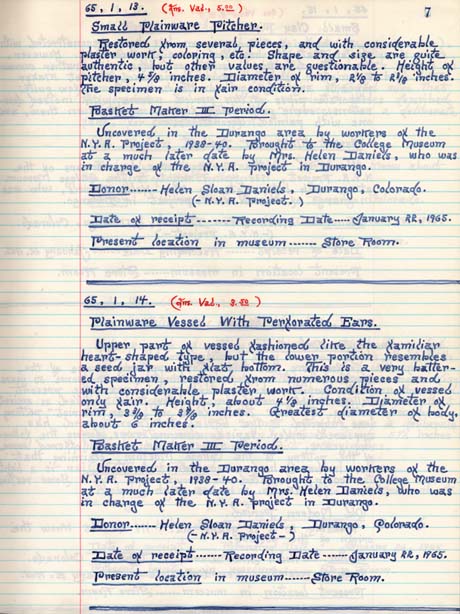 7
65, 1, 13. (Ins. Val., 5.00)
Small Plainware Pitcher.
Restored from several pieces, and with considerable
plaster work, coloring, etc. Shape and size are quite
authentic, but other values are questionable. Height of
pitcher, 4 7/8 inches. Diameter of rim, 2 1/8 to 2 7/8 inches.
The specimen is in fair condition.
Basket Maker III Period.
Uncovered in the Durango area by workers of the
N.Y.A. Project, 1938-40. Brought to the College Museum
at a much later date by Mrs. Helen Daniels, who was
in charge of the N.Y.A. Project in Durango.
Donor------- Helen Sloan Daniels, Durango, Colorado.
(-N.Y.A. Project.)
Date of receipt-------- Recording Date---- January 22, 1965.
Present location in museum------ Store Room.
65, 1, 14. (Ins. Val., 8.50)
Plainware Vessel With Perforated Ears.
Upper part of vessel fashioned like the familiar
heart-shaped type, but the lower portion resembles
a seed jar with flat bottom. This is a very batter-
ed specimen, restored from numerous pieces and
with considerable plaster work. Condition of vessel
only fair. Height, about 4 1/8 inches. Diameter of
rim, 3 to 3 inches. Greatest diameter of body,
about 6 inches.
Basket Maker III Period.
Uncovered in the Durango area by workers of the
N.Y.A. Project, 1938-40. Brought to the College Museum
at a much later date by Mrs. Helen Daniels, who was
in charge of the N.Y.A. project in Durango.
Donor------ Helen Sloan Daniels, Durango, Colorado.
(-N.Y.A. Project-)
Date of receipt------Recording Date ------January 22, 1965.
Present location in museum------Store Room.